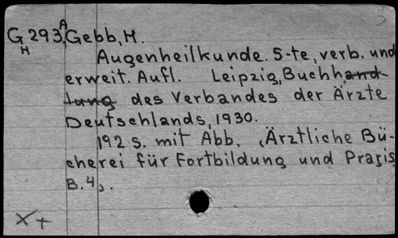 3
G 293 A Gebb, H.
H
Augenheilkunde. 5-te, verb. und
erweit. Aufl. Leipzig, Buchhand-
lung des Verbandes der Ärzte
Deutschlands, 1930.
192 S. mit Abb. (Ärztliche Bü-
cherei für Fortbildung und Praxis
B. 4).
X+